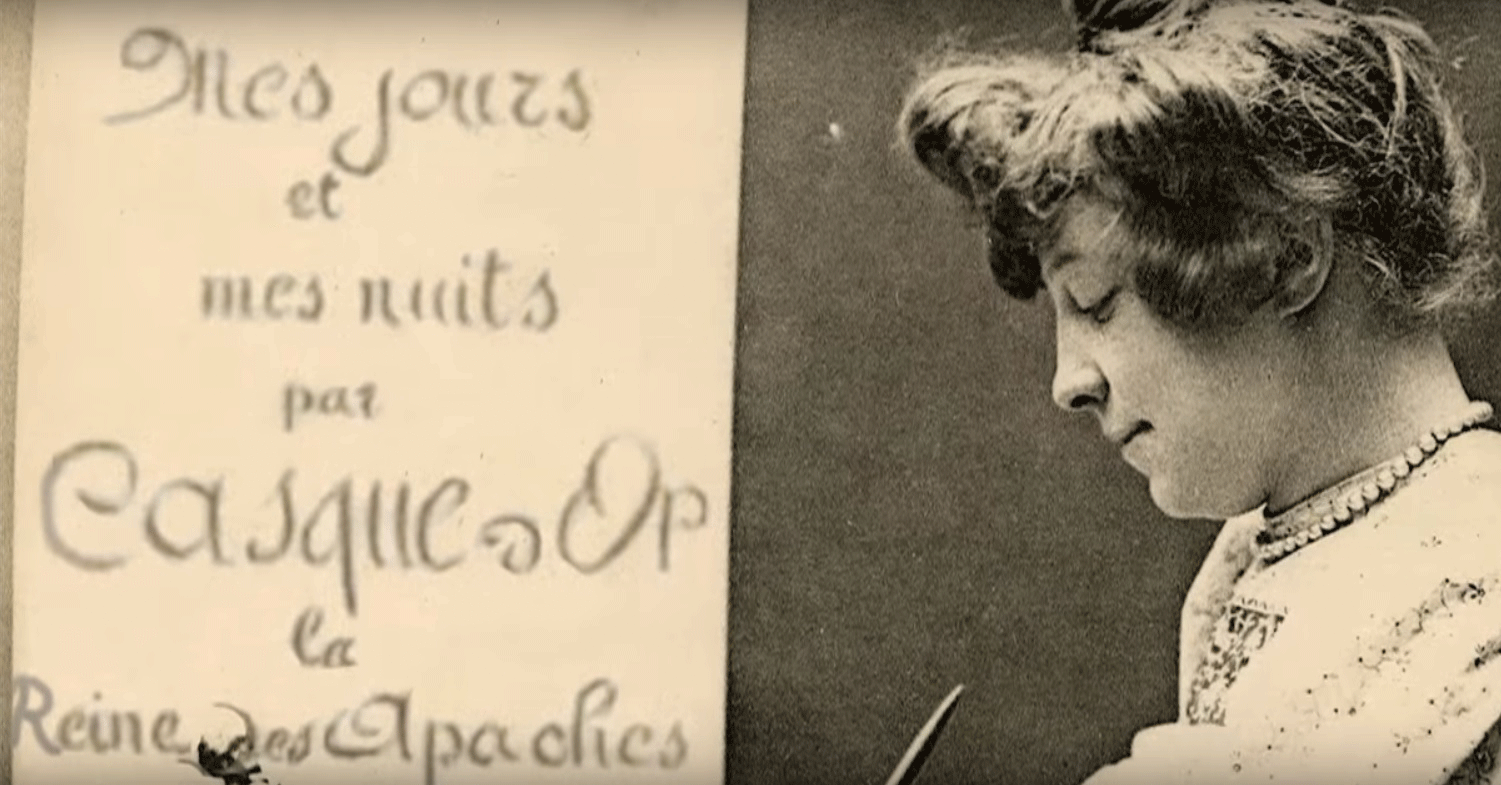 Mes jours
et
mes nuits
par
Casque d'Or
la
Reine des Apaches